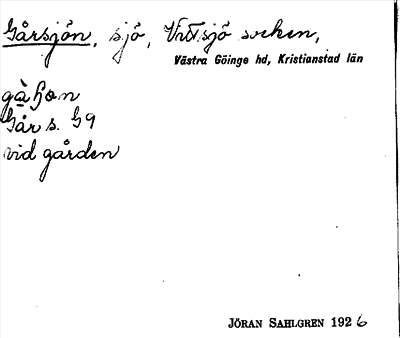 Gårsjön, sjö, Vittsjö socken,
Västra Göinge hd, Kristianstad län
gårs. G9
vid gården
JÖRAN SAHLGREN 1926